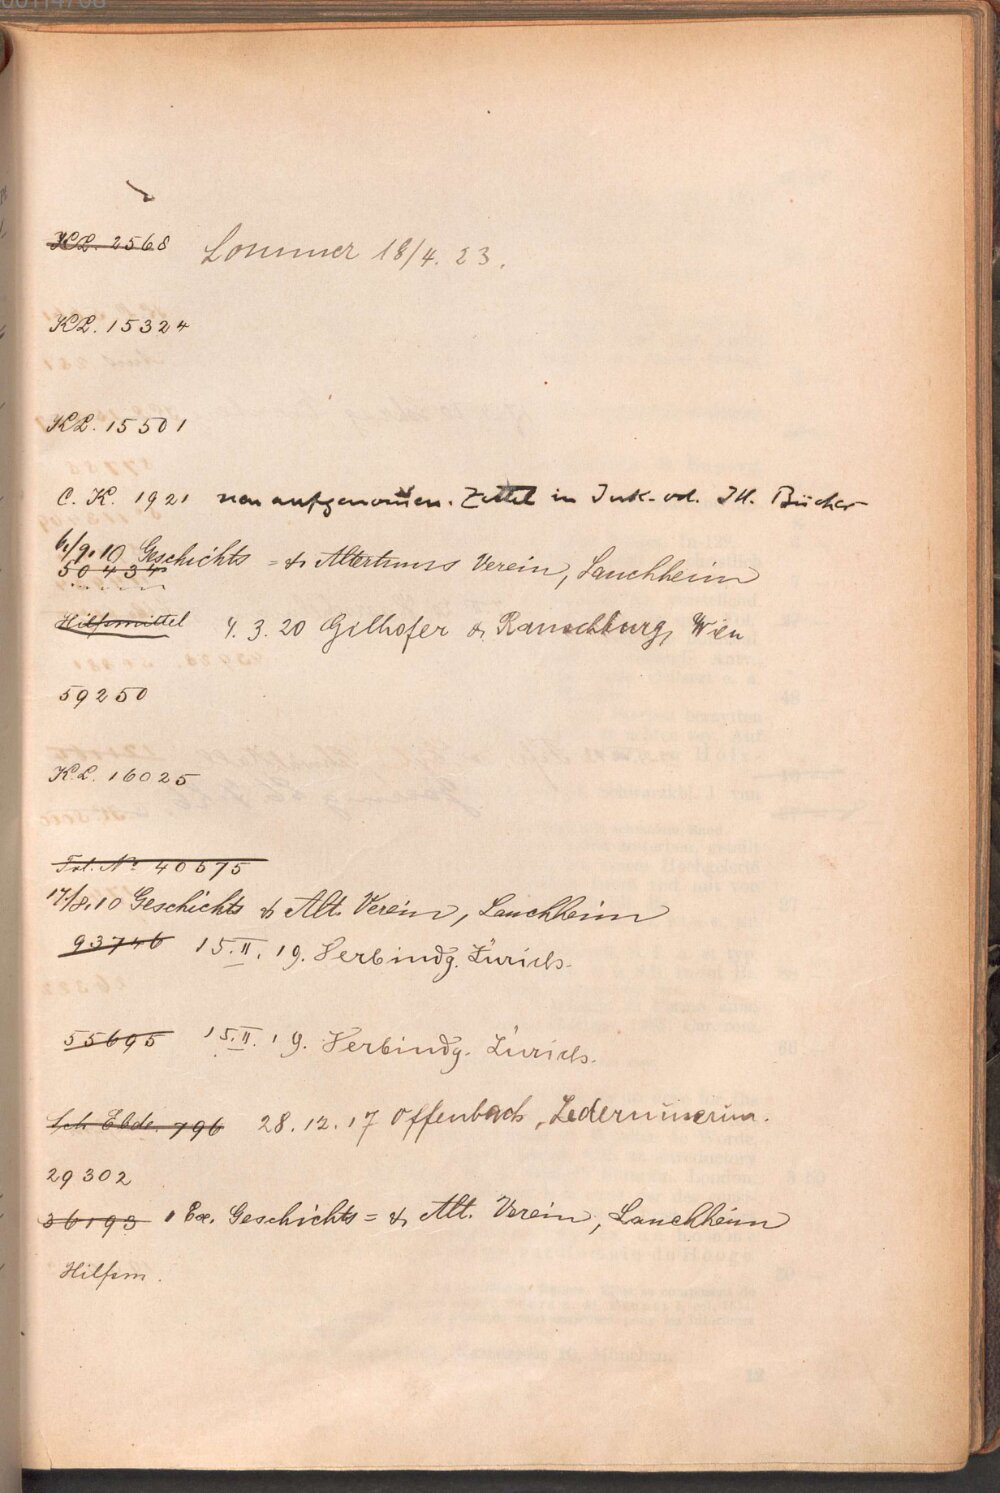 KL. 2568 Lommer 18/4. 23.
KL. 15324
KL. 15501
C. K. 1921 neu aufgenommen. Zettel in Ink. od. Ill. Bücher
6./9.10 Geschichts = & Altertums Verein, Lauchheim
50434
Hilfsmittel 4. 3. 20 Gilhofer & Ranschburg, Wien
59250
KL. 16025
Tol. No 40575
17./8.10 Geschichts & Alt. Verein, Lauchheim
93746 15. II. 19. Verbindg. Zürich.
55695 15. II. 19. Verbindg. Zürich.
Sch. Ebde. 796 28. 12. 17 Offenbach, Ledermuseum.
29302
36193 1 Ex. Geschichts = & Alt. Verein, Lauchheim
Hilfsm.